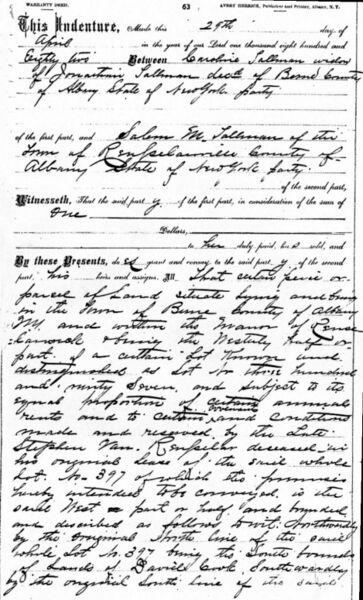 WARRANTY DEED.
63
AVERY HERRICK, Publisher and Printer, Albany, N. Y.
This Indenture, Made this 29th day of
April in the year of our Lord one thousand eight hundred and
Eighty two Between Caroline Tallman widow
of Jonathan Tallman decd of Berne County
of Albany State of New York party
of the first part, and Salem M. Tallman of the
Town of Rensselaerville County of
Albany State of New York party
of the second part,
Witnesseth, That the said party of the first part, in consideration of the sum of
One
Dollars,
to her duly paid, has sold, and
By these Presents, does grant and convey to the said party of the second
part, his heirs and assigns, All That certain piece or
parcel of Land situate lying and being
in the Town of Berne County of Albany
and within the Manor of Rense
being the Westerly Half or
part of a certain Lot known and
distinguished as Lot No three hundred
and ninty Seven, and subject to its
equal proportion of certain annual
rents and to certain covenants and conditions
made and reserved by the Late
Stephen Van Rensselaer deceased in
his original Lease of the said whole
Lot No. 397 of which the premises
hereby intended to be conveyed is the
said West part or half and bounded
and described as follows to wit: Northwardly
by the original North line of the said
whole Lot No. 397 being the South bounds
of Lands of David Cook, Southwardly
by the original South line of the said